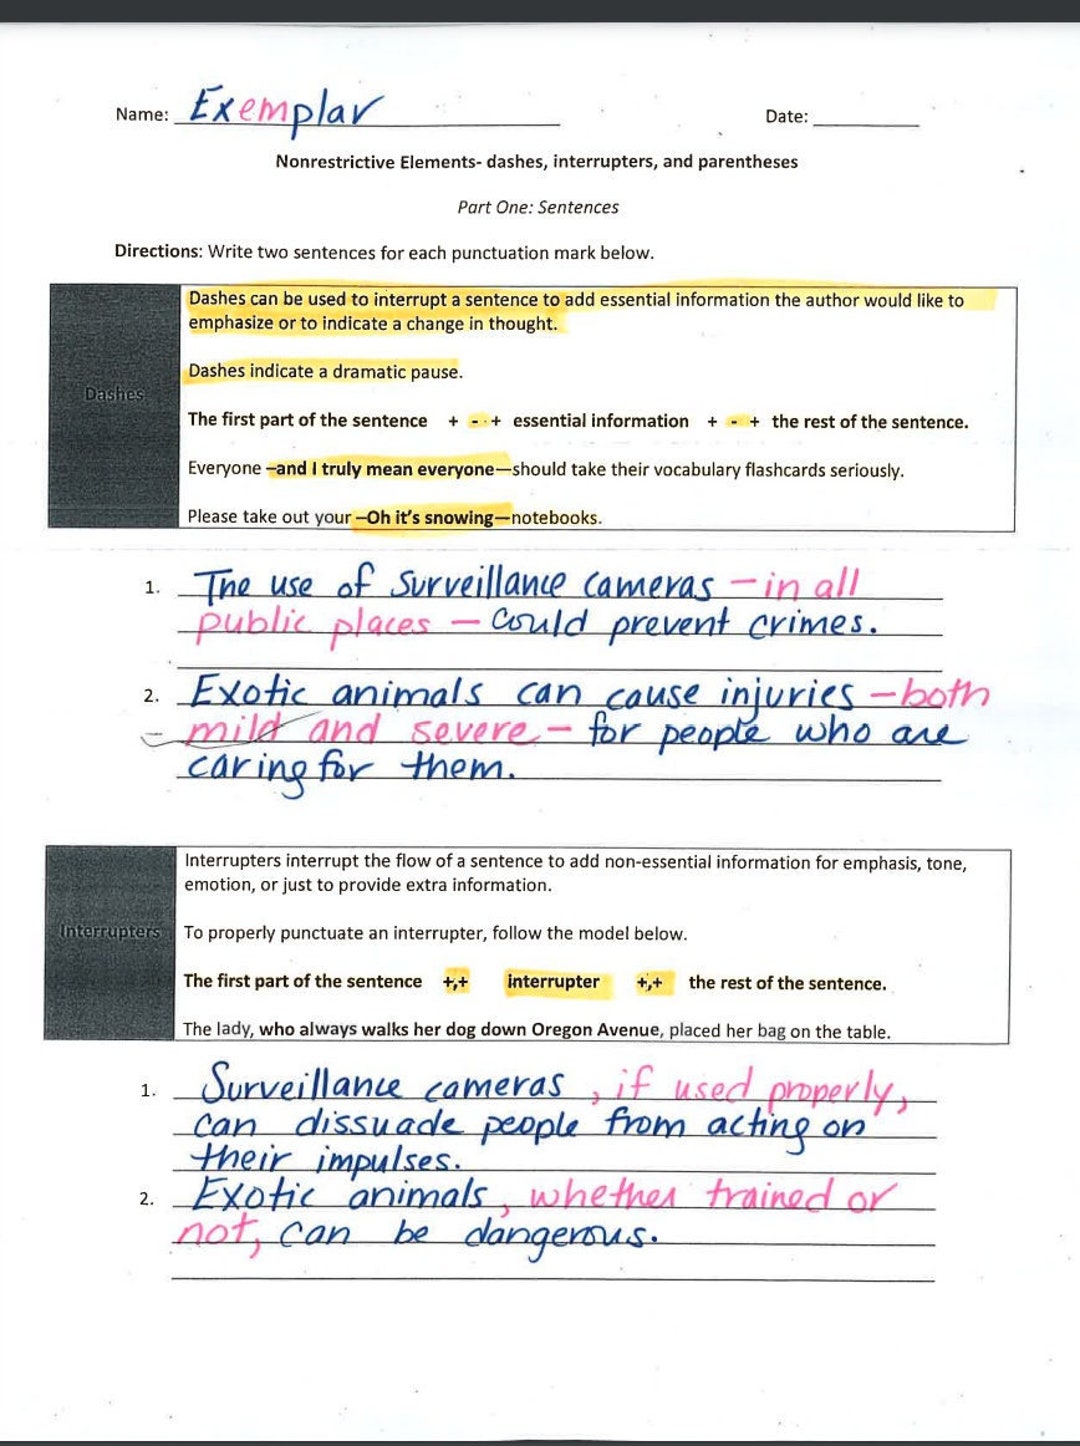 Name: Exemplar Date:
Nonrestrictive Elements- dashes, interrupters, and parentheses
Part One: Sentences
Directions: Write two sentences for each punctuation mark below.
Dashes can be used to interrupt a sentence to add essential information the author would like to
emphasize or to indicate a change in thought.
Dashes indicate a dramatic pause.
Dashes
The first part of the sentence + - + essential information + - + the rest of the sentence.
Everyone –and I truly mean everyone—should take their vocabulary flashcards seriously.
Please take out your –Oh it's snowing—notebooks.
1. The use of surveillance cameras – in all
public places – could prevent crimes.
2. Exotic animals can cause injuries – both
mild and severe – for people who are
caring for them.
Interrupters interrupt the flow of a sentence to add non-essential information for emphasis, tone,
emotion, or just to provide extra information.
Interrupters
To properly punctuate an interrupter, follow the model below.
The first part of the sentence +,+ interrupter +,+ the rest of the sentence.
The lady, who always walks her dog down Oregon Avenue, placed her bag on the table.
1. Surveillance cameras, if used properly,
can dissuade people from acting on
their impulses.
2. Exotic animals, whether trained or
not, can be dangerous.